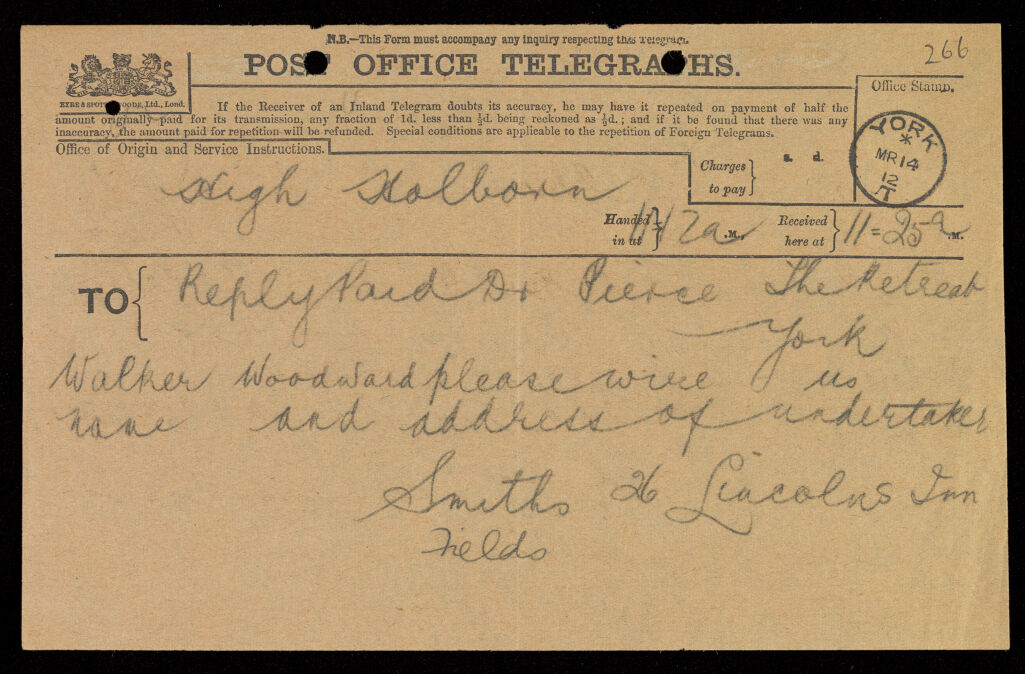 N.B.—This Form must accompany any inquiry respecting this Telegram.
266
POST OFFICE TELEGRAPHS.
EYRE & SPOTTISWOODE, Ltd., Lond.
If the Receiver of an Inland Telegram doubts its accuracy, he may have it repeated on payment of half the
amount originally paid for its transmission, any fraction of 1d. less than ½d. being reckoned as ½d.; and if it be found that there was any
inaccuracy, the amount paid for repetition will be refunded. Special conditions are applicable to the repetition of Foreign Telegrams.
Office Stamp.
YORK
*
MR 14
12
Office of Origin and Service Instructions.
Charges
to pay
s. d.
High Holborn
Handed
in at
.M.,
Received
here at
11=25a
.M.
TO
Reply Paid Dr Pierce The Retreat
York
Walker Woodward please wire us
name and address of undertaker
Smiths 26 Lincolns Inn
Fields